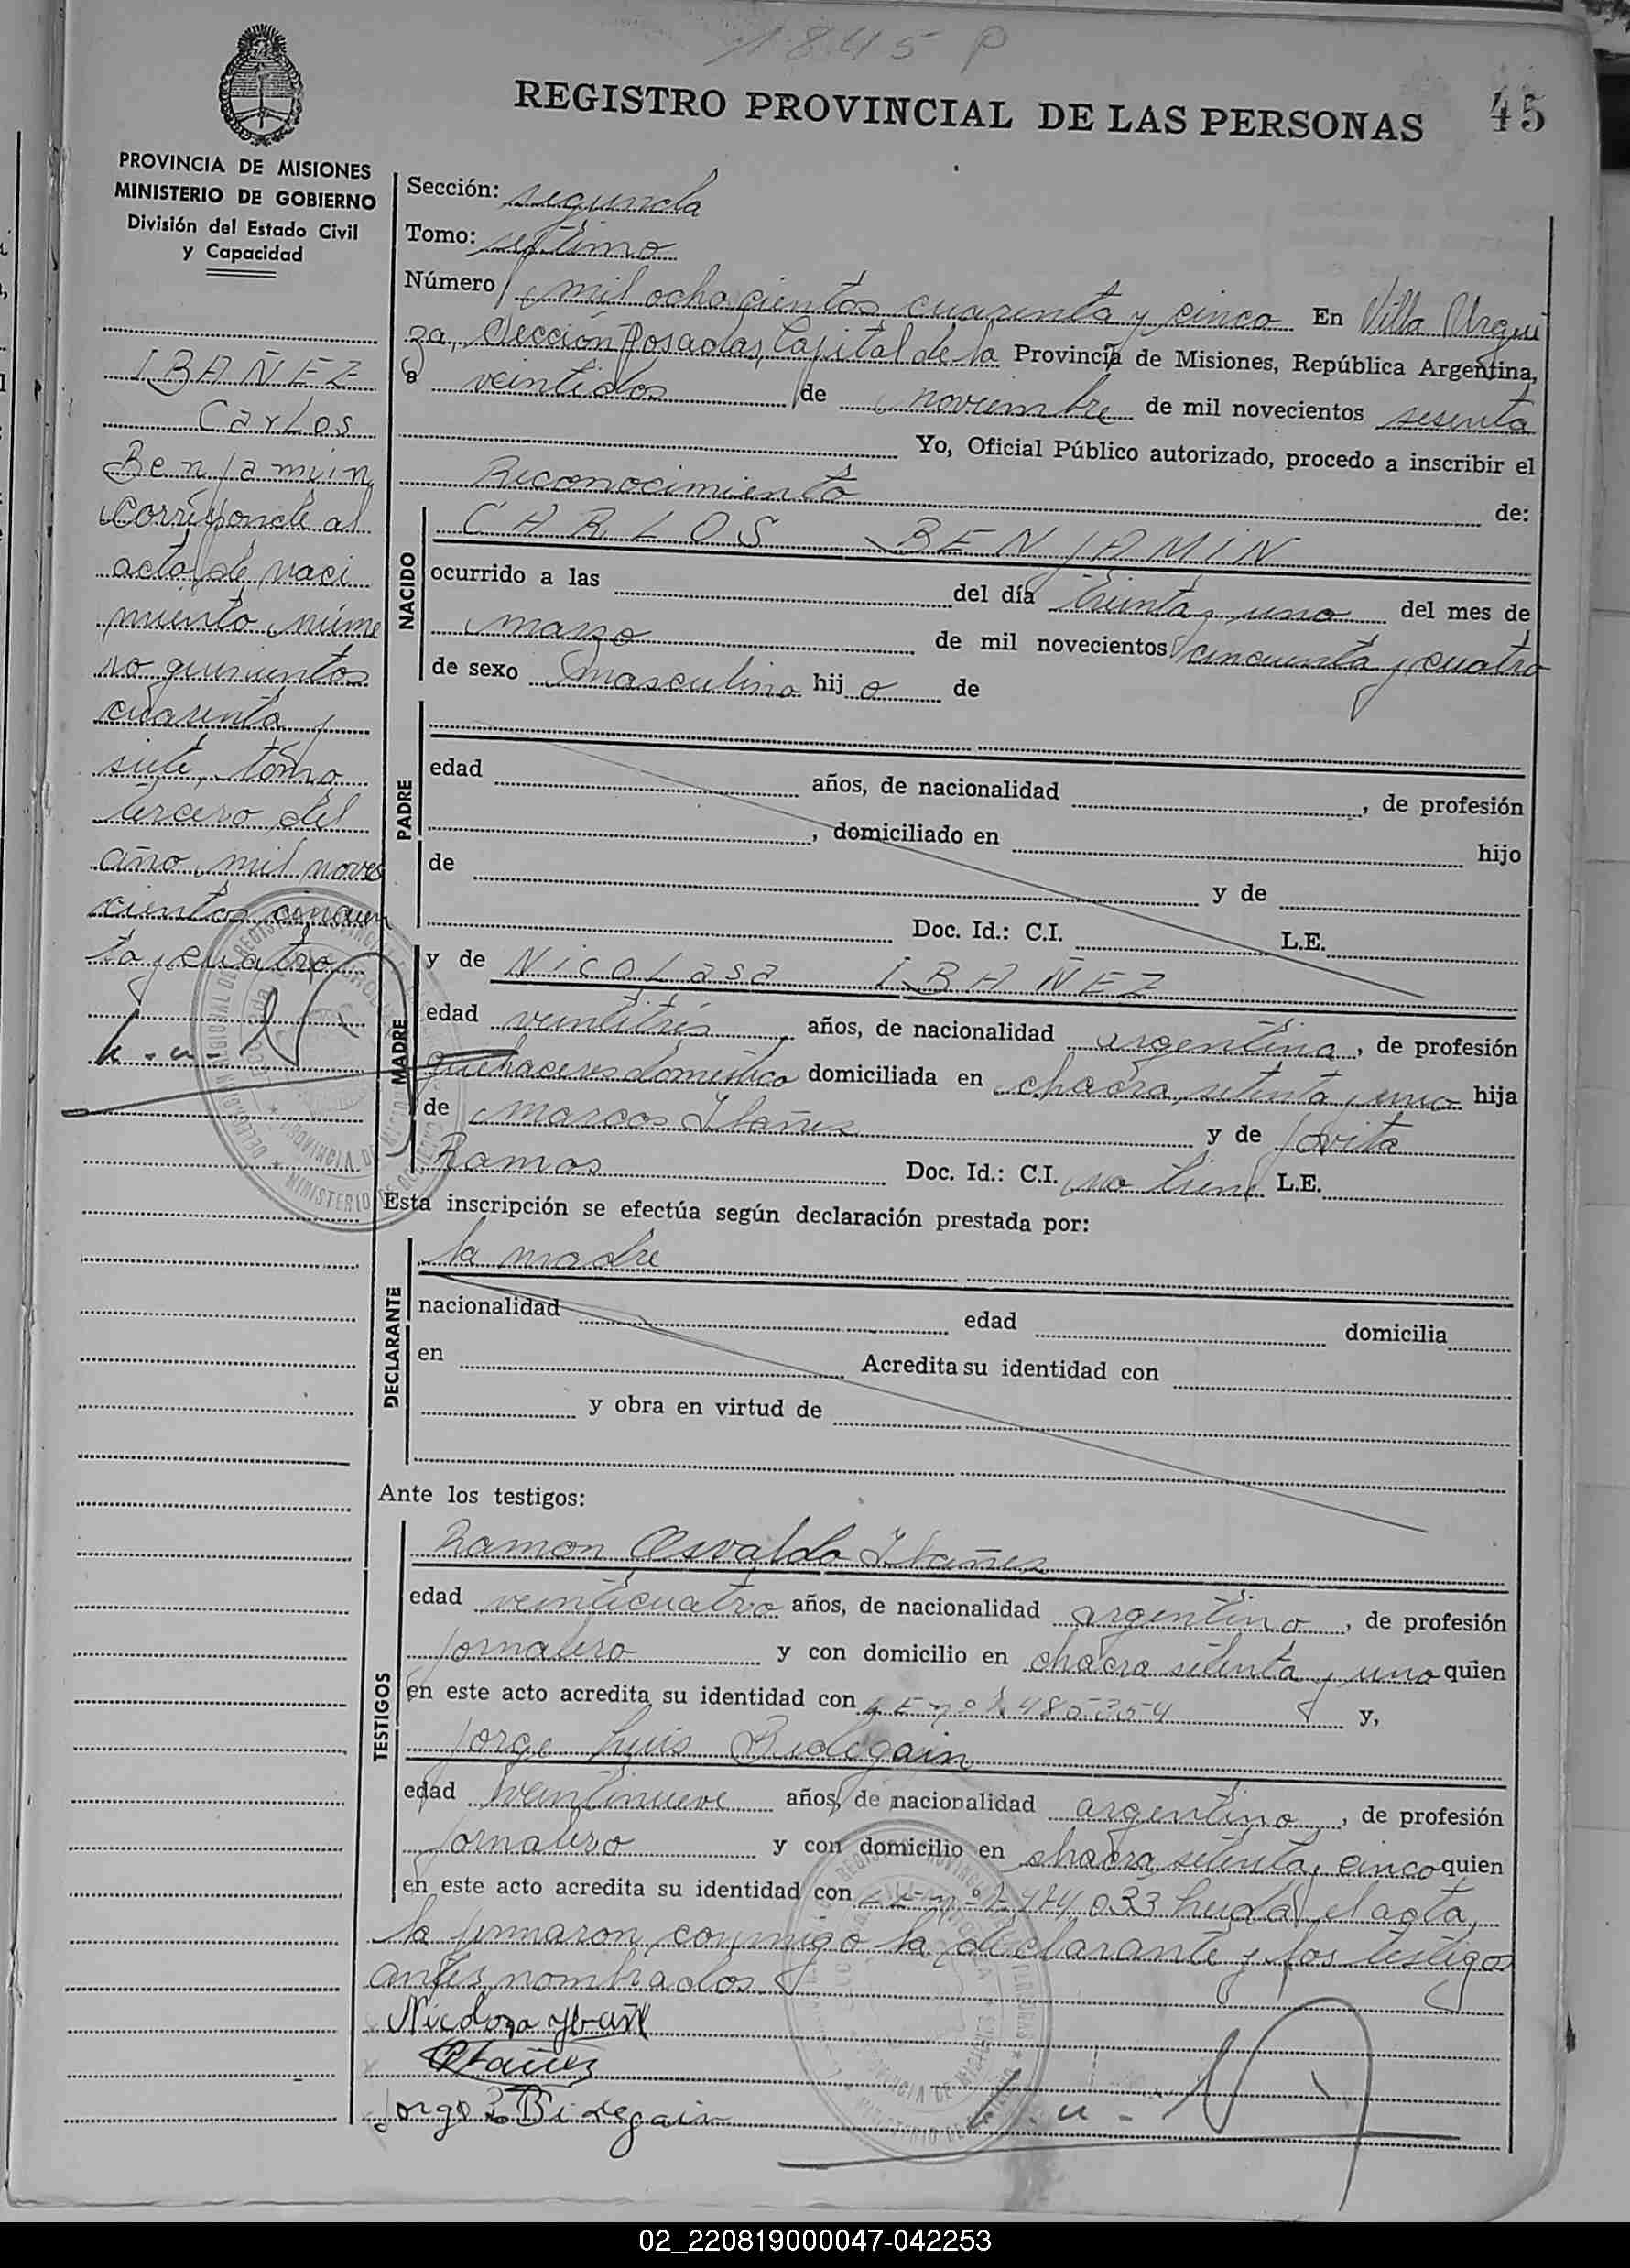 1845 P
REGISTRO PROVINCIAL DE LAS PERSONAS
45
PROVINCIA DE MISIONES
MINISTERIO DE GOBIERNO
División del Estado Civil
y Capacidad
IBAÑEZ
Carlos
Benjamin
Corresponde al
acta de naci
miento núme
ro quinientos
cuarenta y
siete, tomo
tercero del
año mil nove
cientos cincuen
ta y cuatro
Sección: segunda
Tomo: septimo
Número mil ochocientos cuarenta y cinco En Villa Urqui
za, Sección Posadas, Capital de la Provincia de Misiones, República Argentina,
a veintidos de noviembre de mil novecientos sesenta
Yo, Oficial Público autorizado, procedo a inscribir el
Reconocimiento de:
NACIDO
CARLOS BENJAMIN
ocurrido a las del día treinta y uno del mes de
marzo de mil novecientos cincuenta y cuatro
de sexo masculino hijo de
PADRE
edad años, de nacionalidad , de profesión
, domiciliado en hijo
de y de
Doc. Id.: C.I. L.E.
MADRE
y de Nicolasa IBAÑEZ
edad veintitrés años, de nacionalidad argentina, de profesión
quehaceres domestico domiciliada en chacra setenta y uno hija
de Marcos Ibañez y de Jovita
Ramos Doc. Id.: C.I. no tiene L.E.
Esta inscripción se efectúa según declaración prestada por:
DECLARANTE
la madre
nacionalidad edad domicilia
en Acredita su identidad con
y obra en virtud de
Ante los testigos:
TESTIGOS
Ramon Osvaldo Ibañez
edad veinticuatro años, de nacionalidad argentino, de profesión
jornalero y con domicilio en chacra setenta y uno quien
en este acto acredita su identidad con LE nº y,
Jorge Luis Bidegain
edad veintinueve años, de nacionalidad argentino, de profesión
jornalero y con domicilio en chacra setenta y cinco quien
en este acto acredita su identidad con LE nº leida el acta,
la firmaron conmigo la declarante y los testigos
antes nombrados.
Ibañez
Jorge L Bidegain
02_220819000047-042253